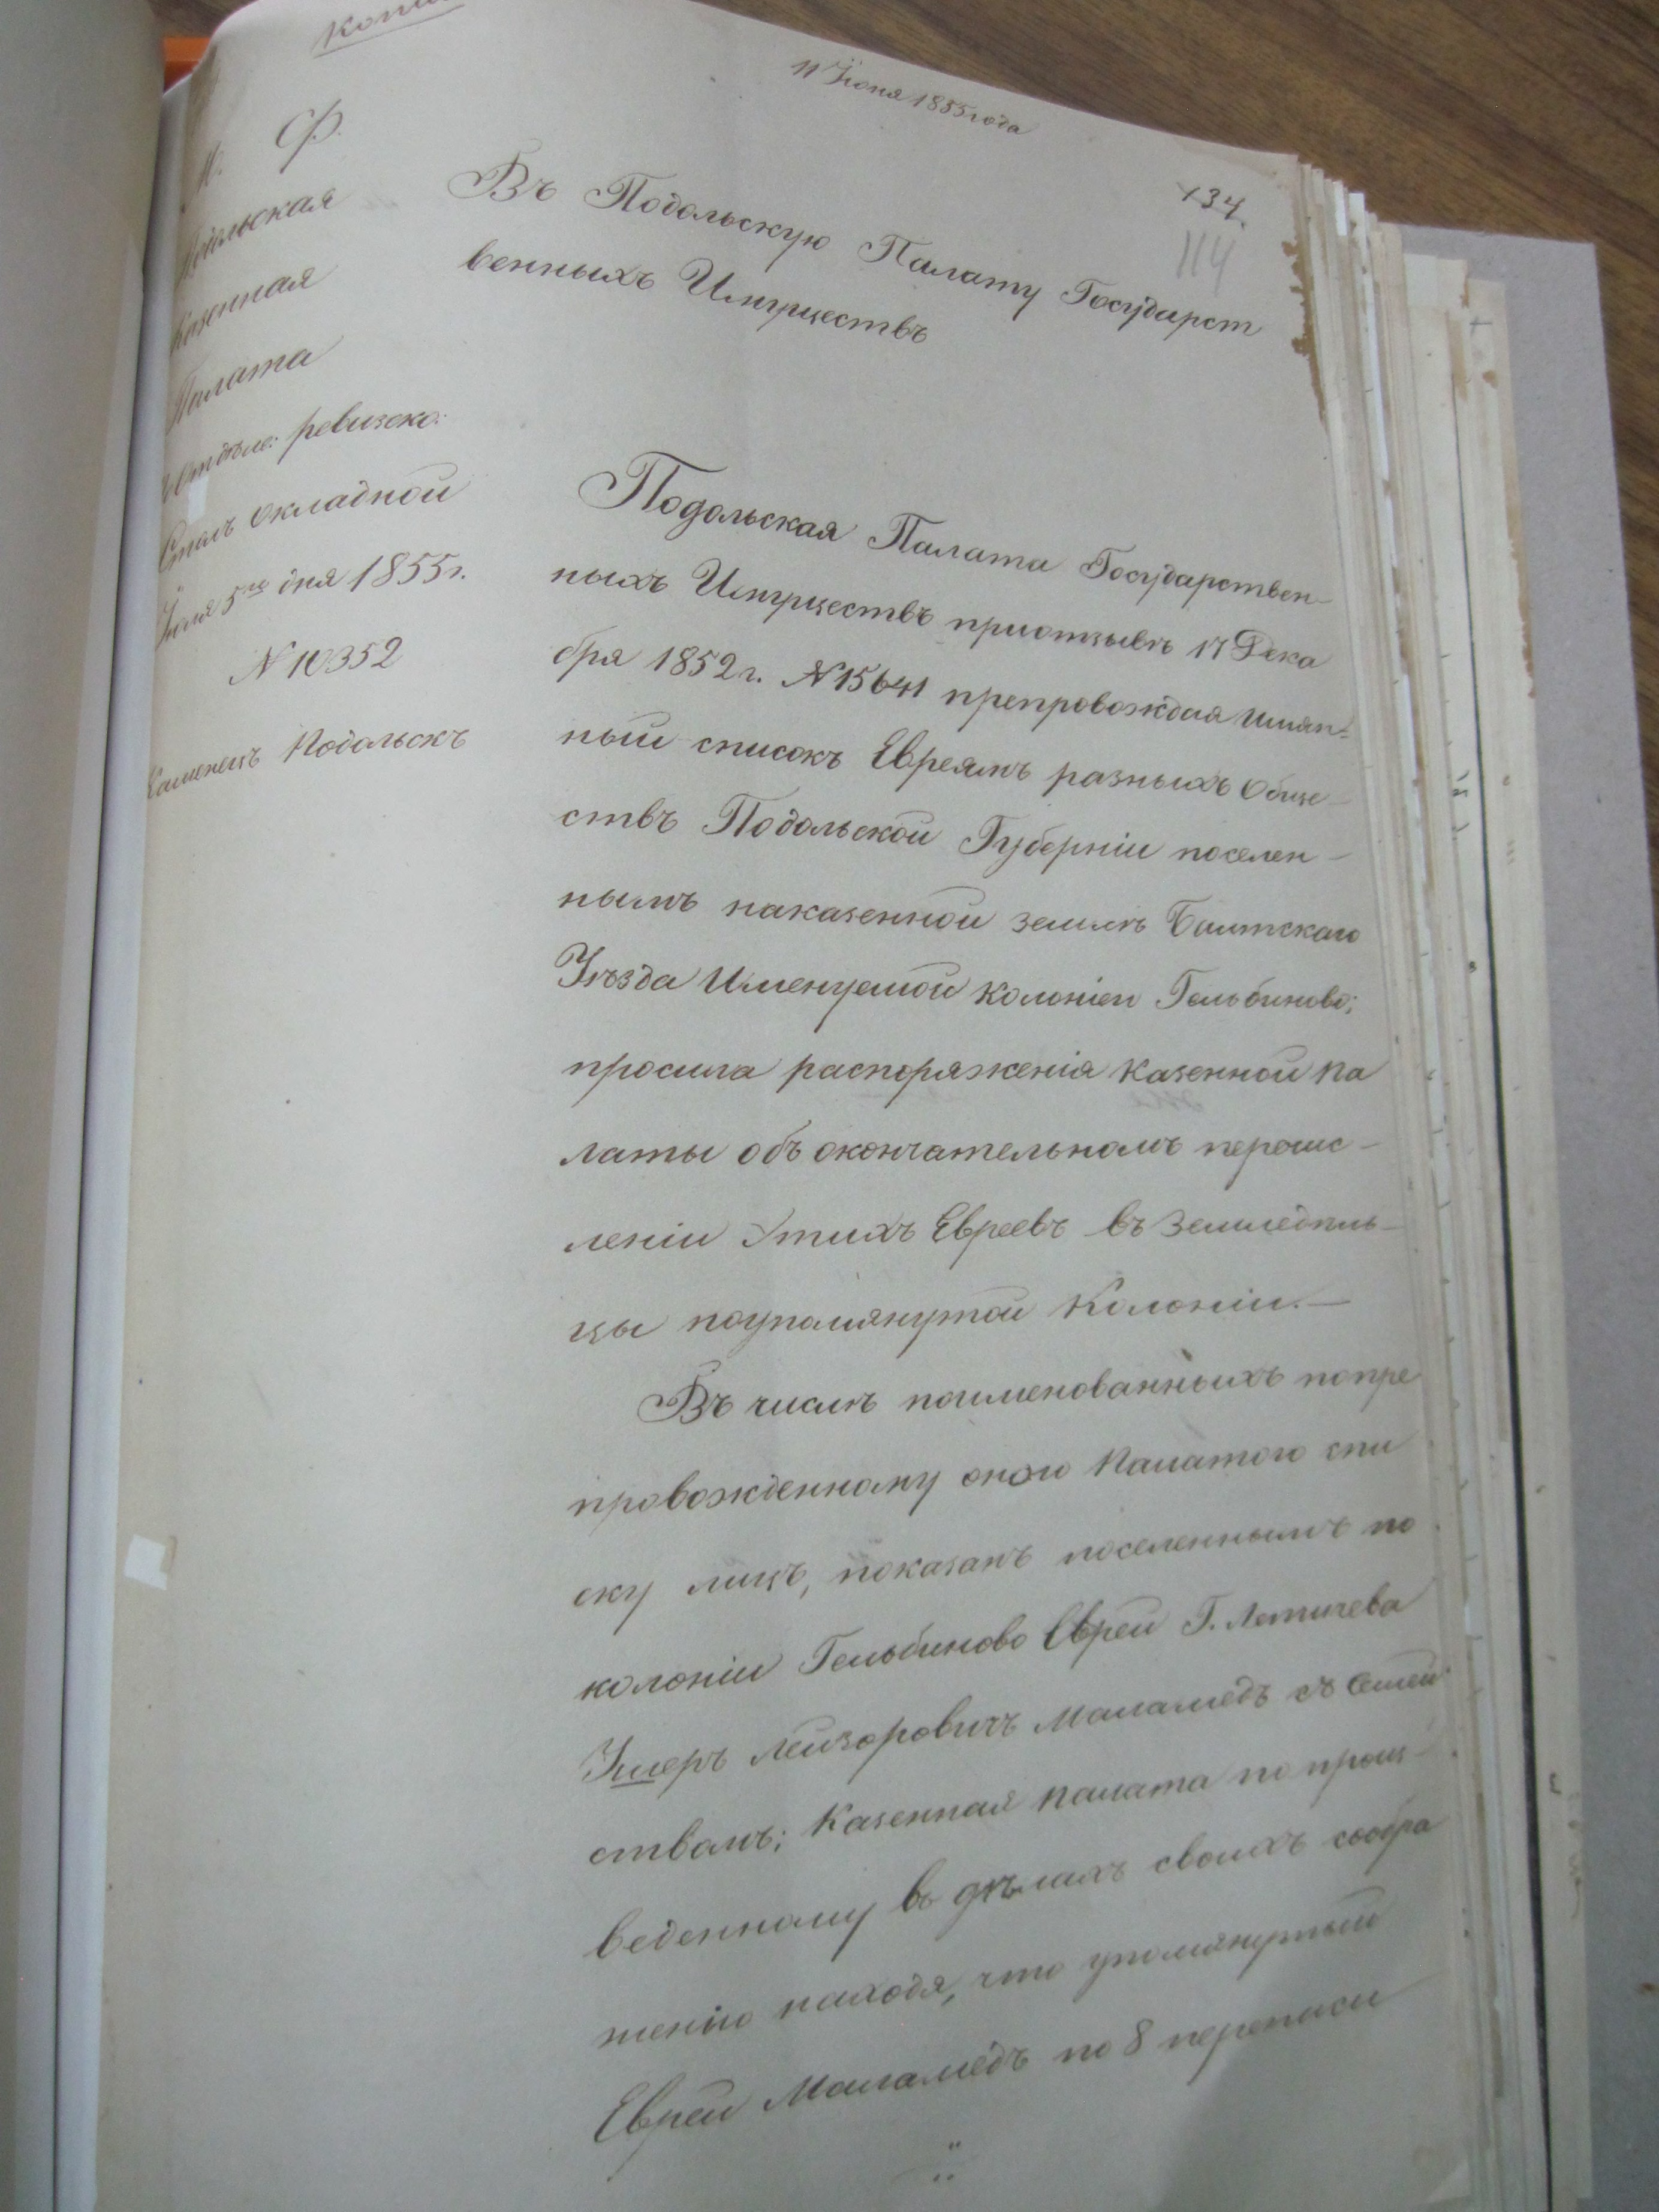 Копі
11 Іюня 1855 года
134
114
М. Ф.
Подольская
Казенная
Палата
Отдѣле: ревизско:
Столъ Окладной
5го дня 1855 г.
N 10352
Каменецъ Подольскъ
Въ Подольскую Палату Государст
венныхъ Имуществъ
Подольская Палата Государствен-
ныхъ Имуществъ приотзывѣ 17 Дека
бря 1852 г. N 15641 препровождая имян-
ный списокъ Евреямъ разныхъ Обще-
ствъ Подольской Губерніи поселен-
нымъ наказенной землѣ Балтскаго
Уѣзда Именуемой Колоніеи Гельбиново;
просила распоряженія Казенной Па
латы объ окончательномъ перечис-
леніи Этихъ Евреевъ въ Земледѣль-
цы поупомянутой Колоніи.—
Въ числѣ поименованныхъ попре
провожденному оною Палатою спи
ску лицъ, показанъ поселеннымъ по
колоніи Гельбиново Еврей Г. Летичева
Ушеръ Лейзоровичъ Маламедъ съ семей
ствомъ; Казенная Палата по произ-
веденному въ дѣлахъ своихъ сообра
женію находя, что упомянутый
Еврей Маламедъ по 8 переписи